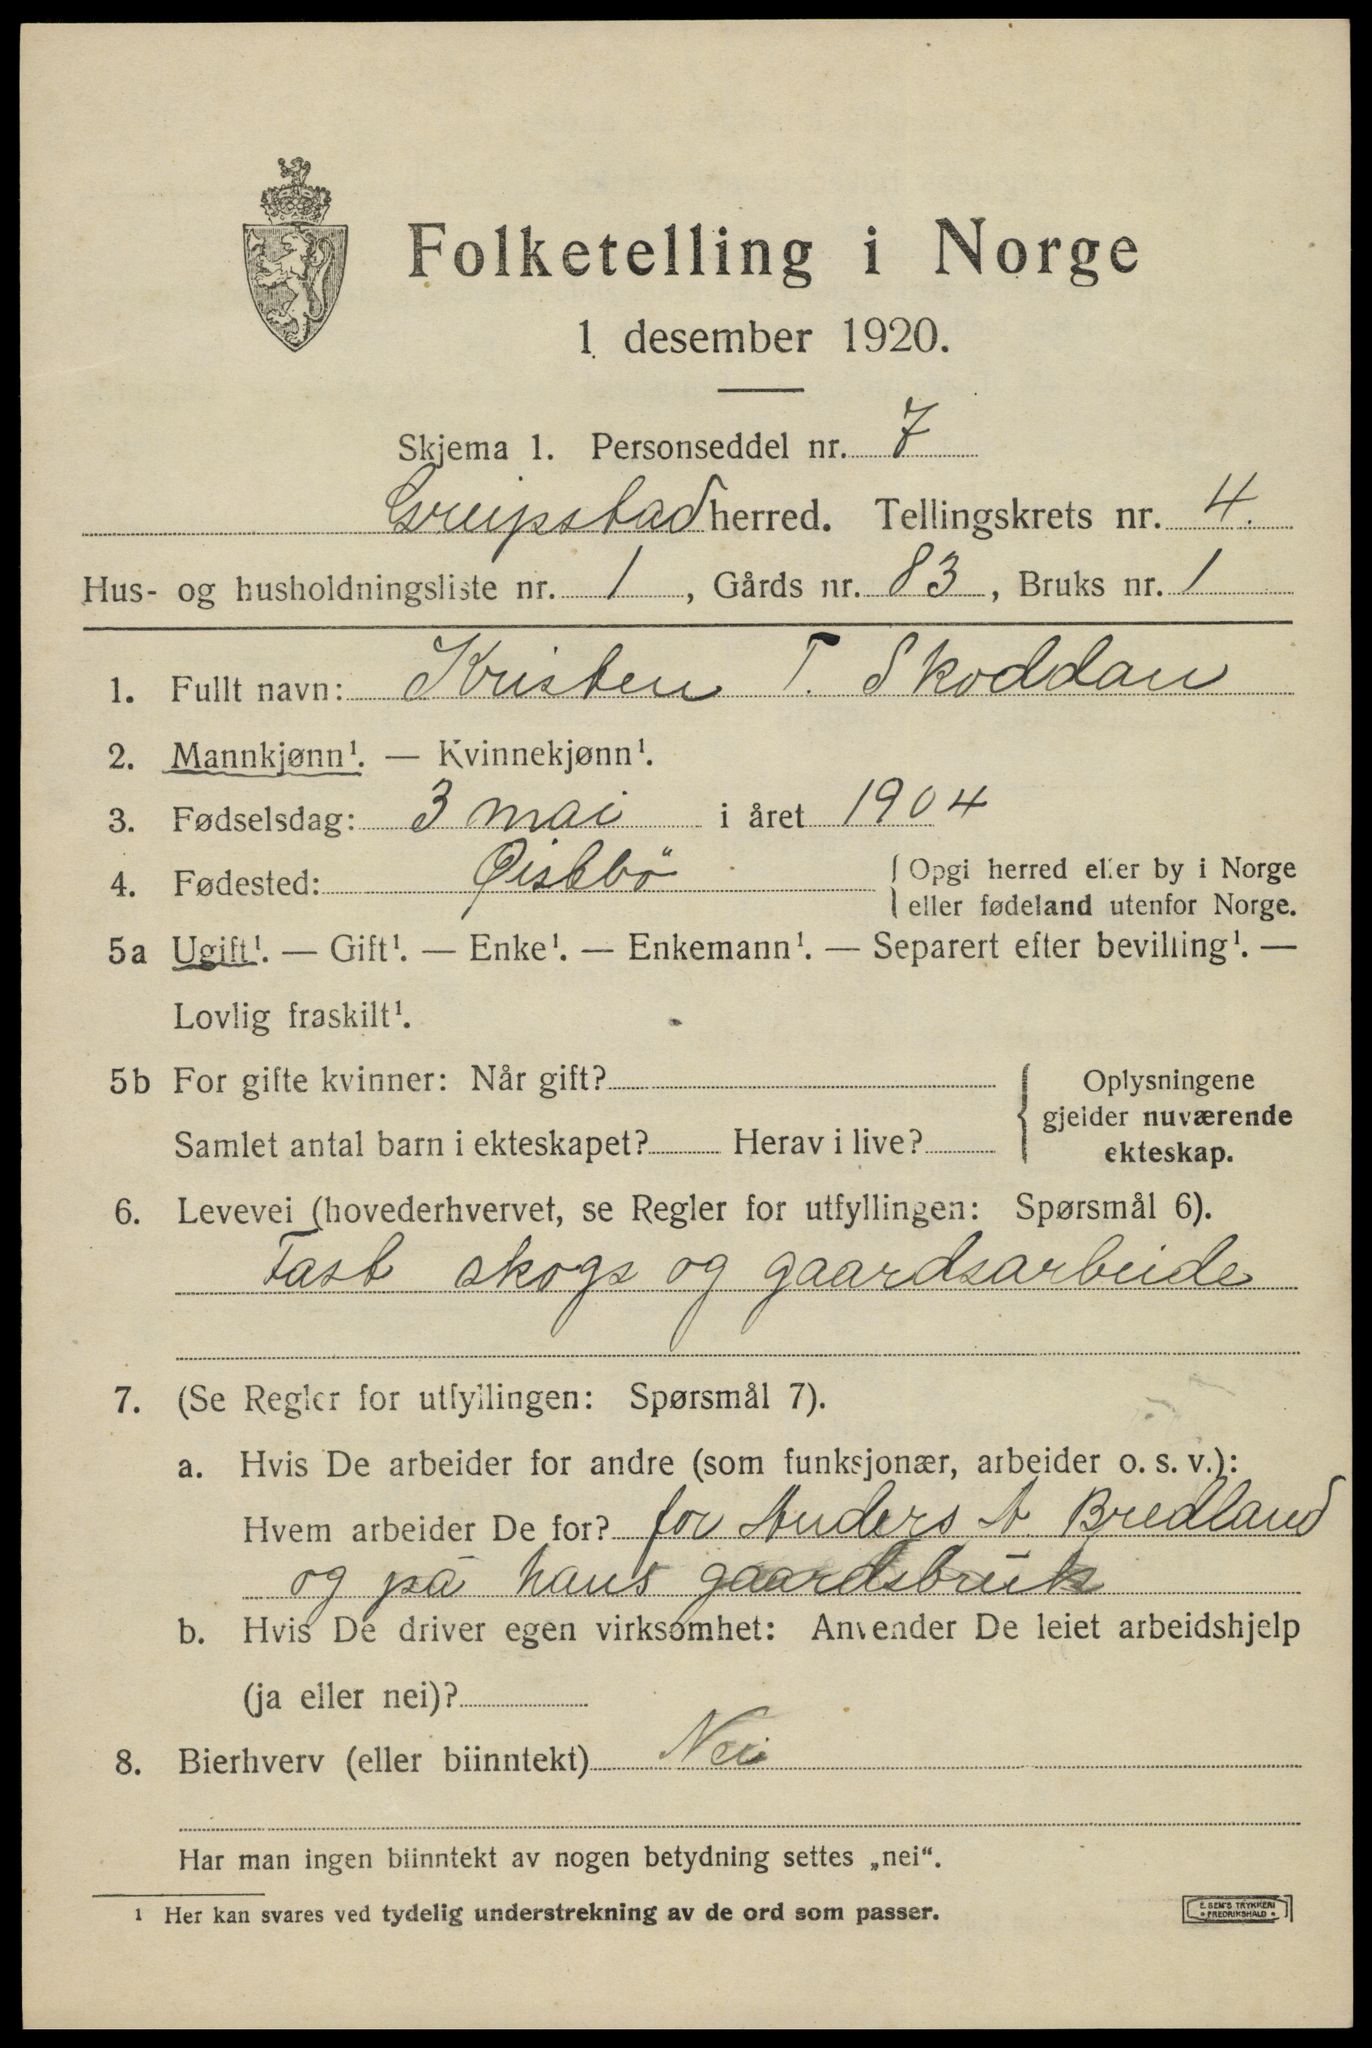 Folketelling i Norge
1 desember 1920.
Skjema 1. Personseddel nr. 7
Greipstad herred. Tellingskrets nr. 4.
Hus- og husholdningsliste nr. 1, Gårds nr. 83, Bruks nr. 1
1. Fullt navn: Kristen T. Skoddan
2. Mannkjønn¹. — Kvinnekjønn¹.
3. Fødselsdag: 3 mai i året 1904
4. Fødested: Øislebö { Opgi herred eller by i Norge
eller fødeland utenfor Norge.
5a Ugift¹. — Gift¹. — Enke¹. — Enkemann¹. — Separert efter bevilling¹. —
Lovlig fraskilt¹.
5b For gifte kvinner: Når gift? { Oplysningene
gjelder nuværende
Samlet antal barn i ekteskapet? Herav i live?
ekteskap.
6. Levevei (hovederhvervet, se Regler for utfyllingen: Spørsmål 6).
Fast skogs og gaardsarbeide
7. (Se Regler for utfyllingen: Spørsmål 7).
a. Hvis De arbeider for andre (som funksjonær, arbeider o. s. v.):
Hvem arbeider De for? for Anders A. Bredland
og på hans gaardsbruk
b. Hvis De driver egen virksomhet: Anvender De leiet arbeidshjelp
(ja eller nei)?
8. Bierhverv (eller biinntekt) Nei
Har man ingen biinntekt av nogen betydning settes „nei“.
¹ Her kan svares ved tydelig understrekning av de ord som passer.
E. SEM'S TRYKKERI
* FREDRIKSHALD *